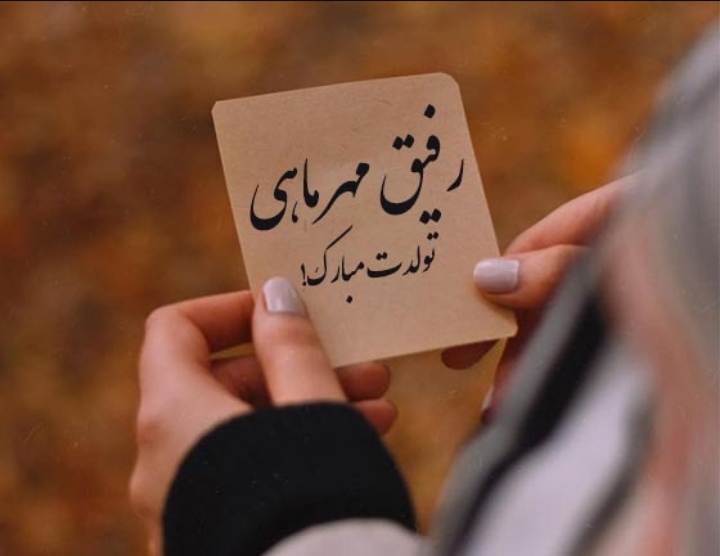 رفیق مهرماهی
تولدت مبارک!